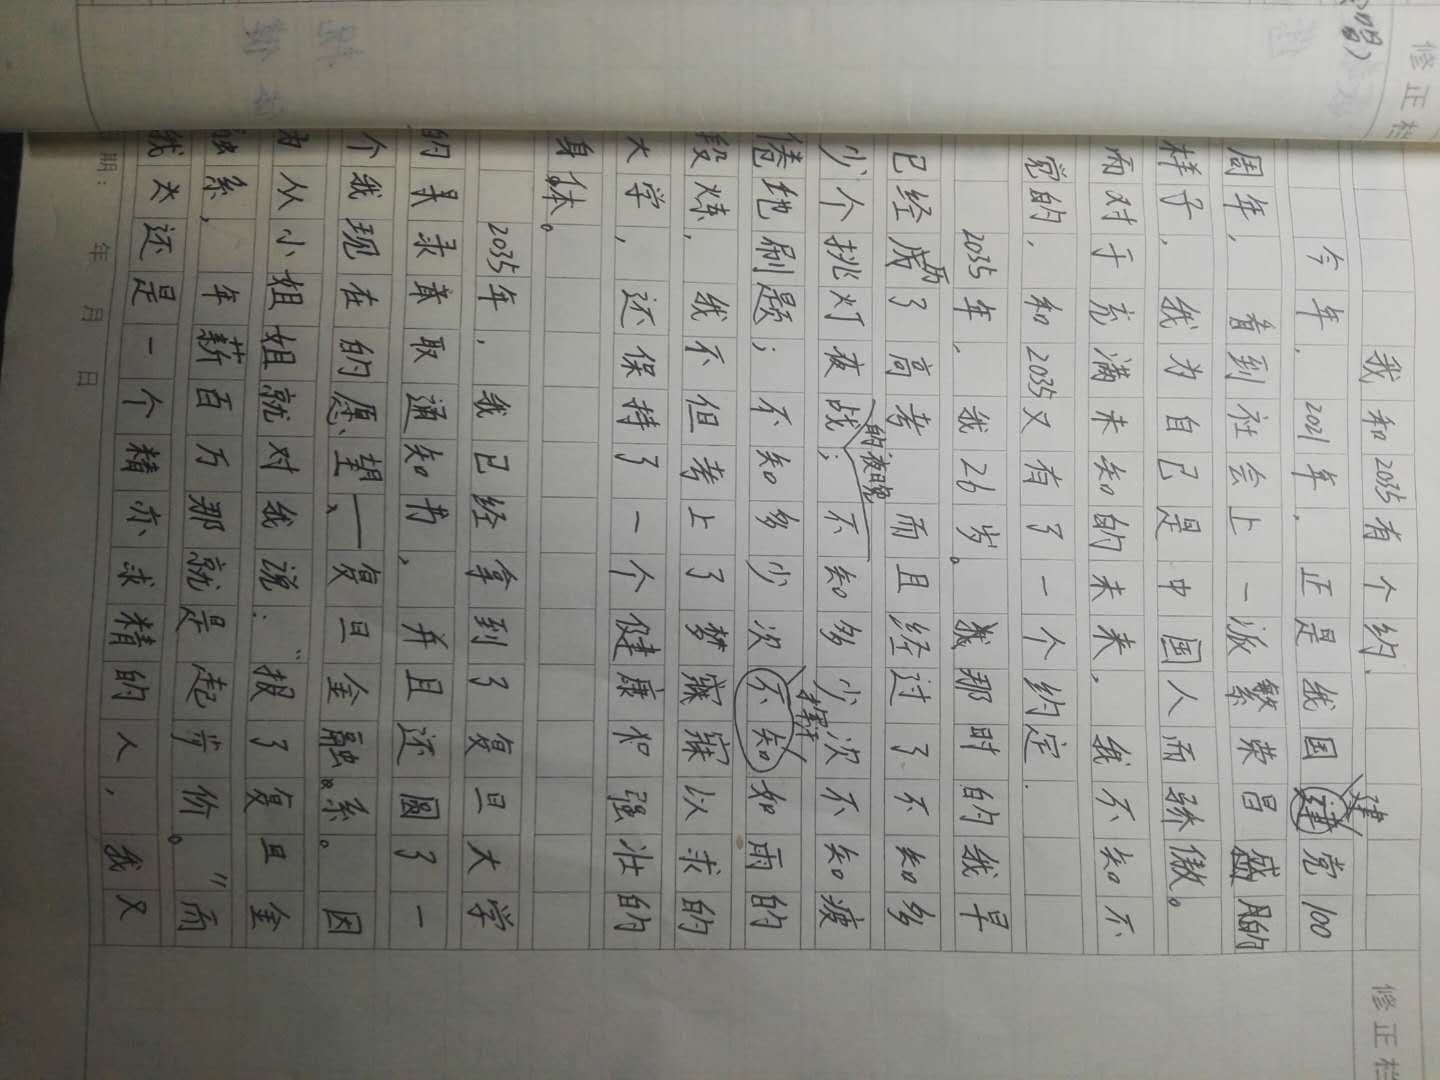 修正栏
唱）
我和2035有个约.
今年，2021年，正是我国建党100
建
周年，看到社会上一派繁荣昌盛的
样子，我为自己是中国人而骄傲。
而对于充满未知的未来，我不知不
觉的，和2035又有了一个约定.
2035年，我26岁。我那时的我早
已经成为了高考，而且经过了不知多
的夜晚
少个挑灯夜战；不知多少次不知疲
挥汗
倦地刷题；不知多少次不知如雨的
段炼，我不但考上了梦寐寐以求的
大学，还保持了一个健康和强壮的
身体。
2035年，我已经拿到了复旦大学
的录取通知书，并且还圆了一
个我现在的愿望、——复旦金融系。因
为从小姐姐就对我说：“报了复旦金
融系，年薪百万那就是起步价。”而
我还是一个精亦求精的人，我又
期：年月日
修正栏